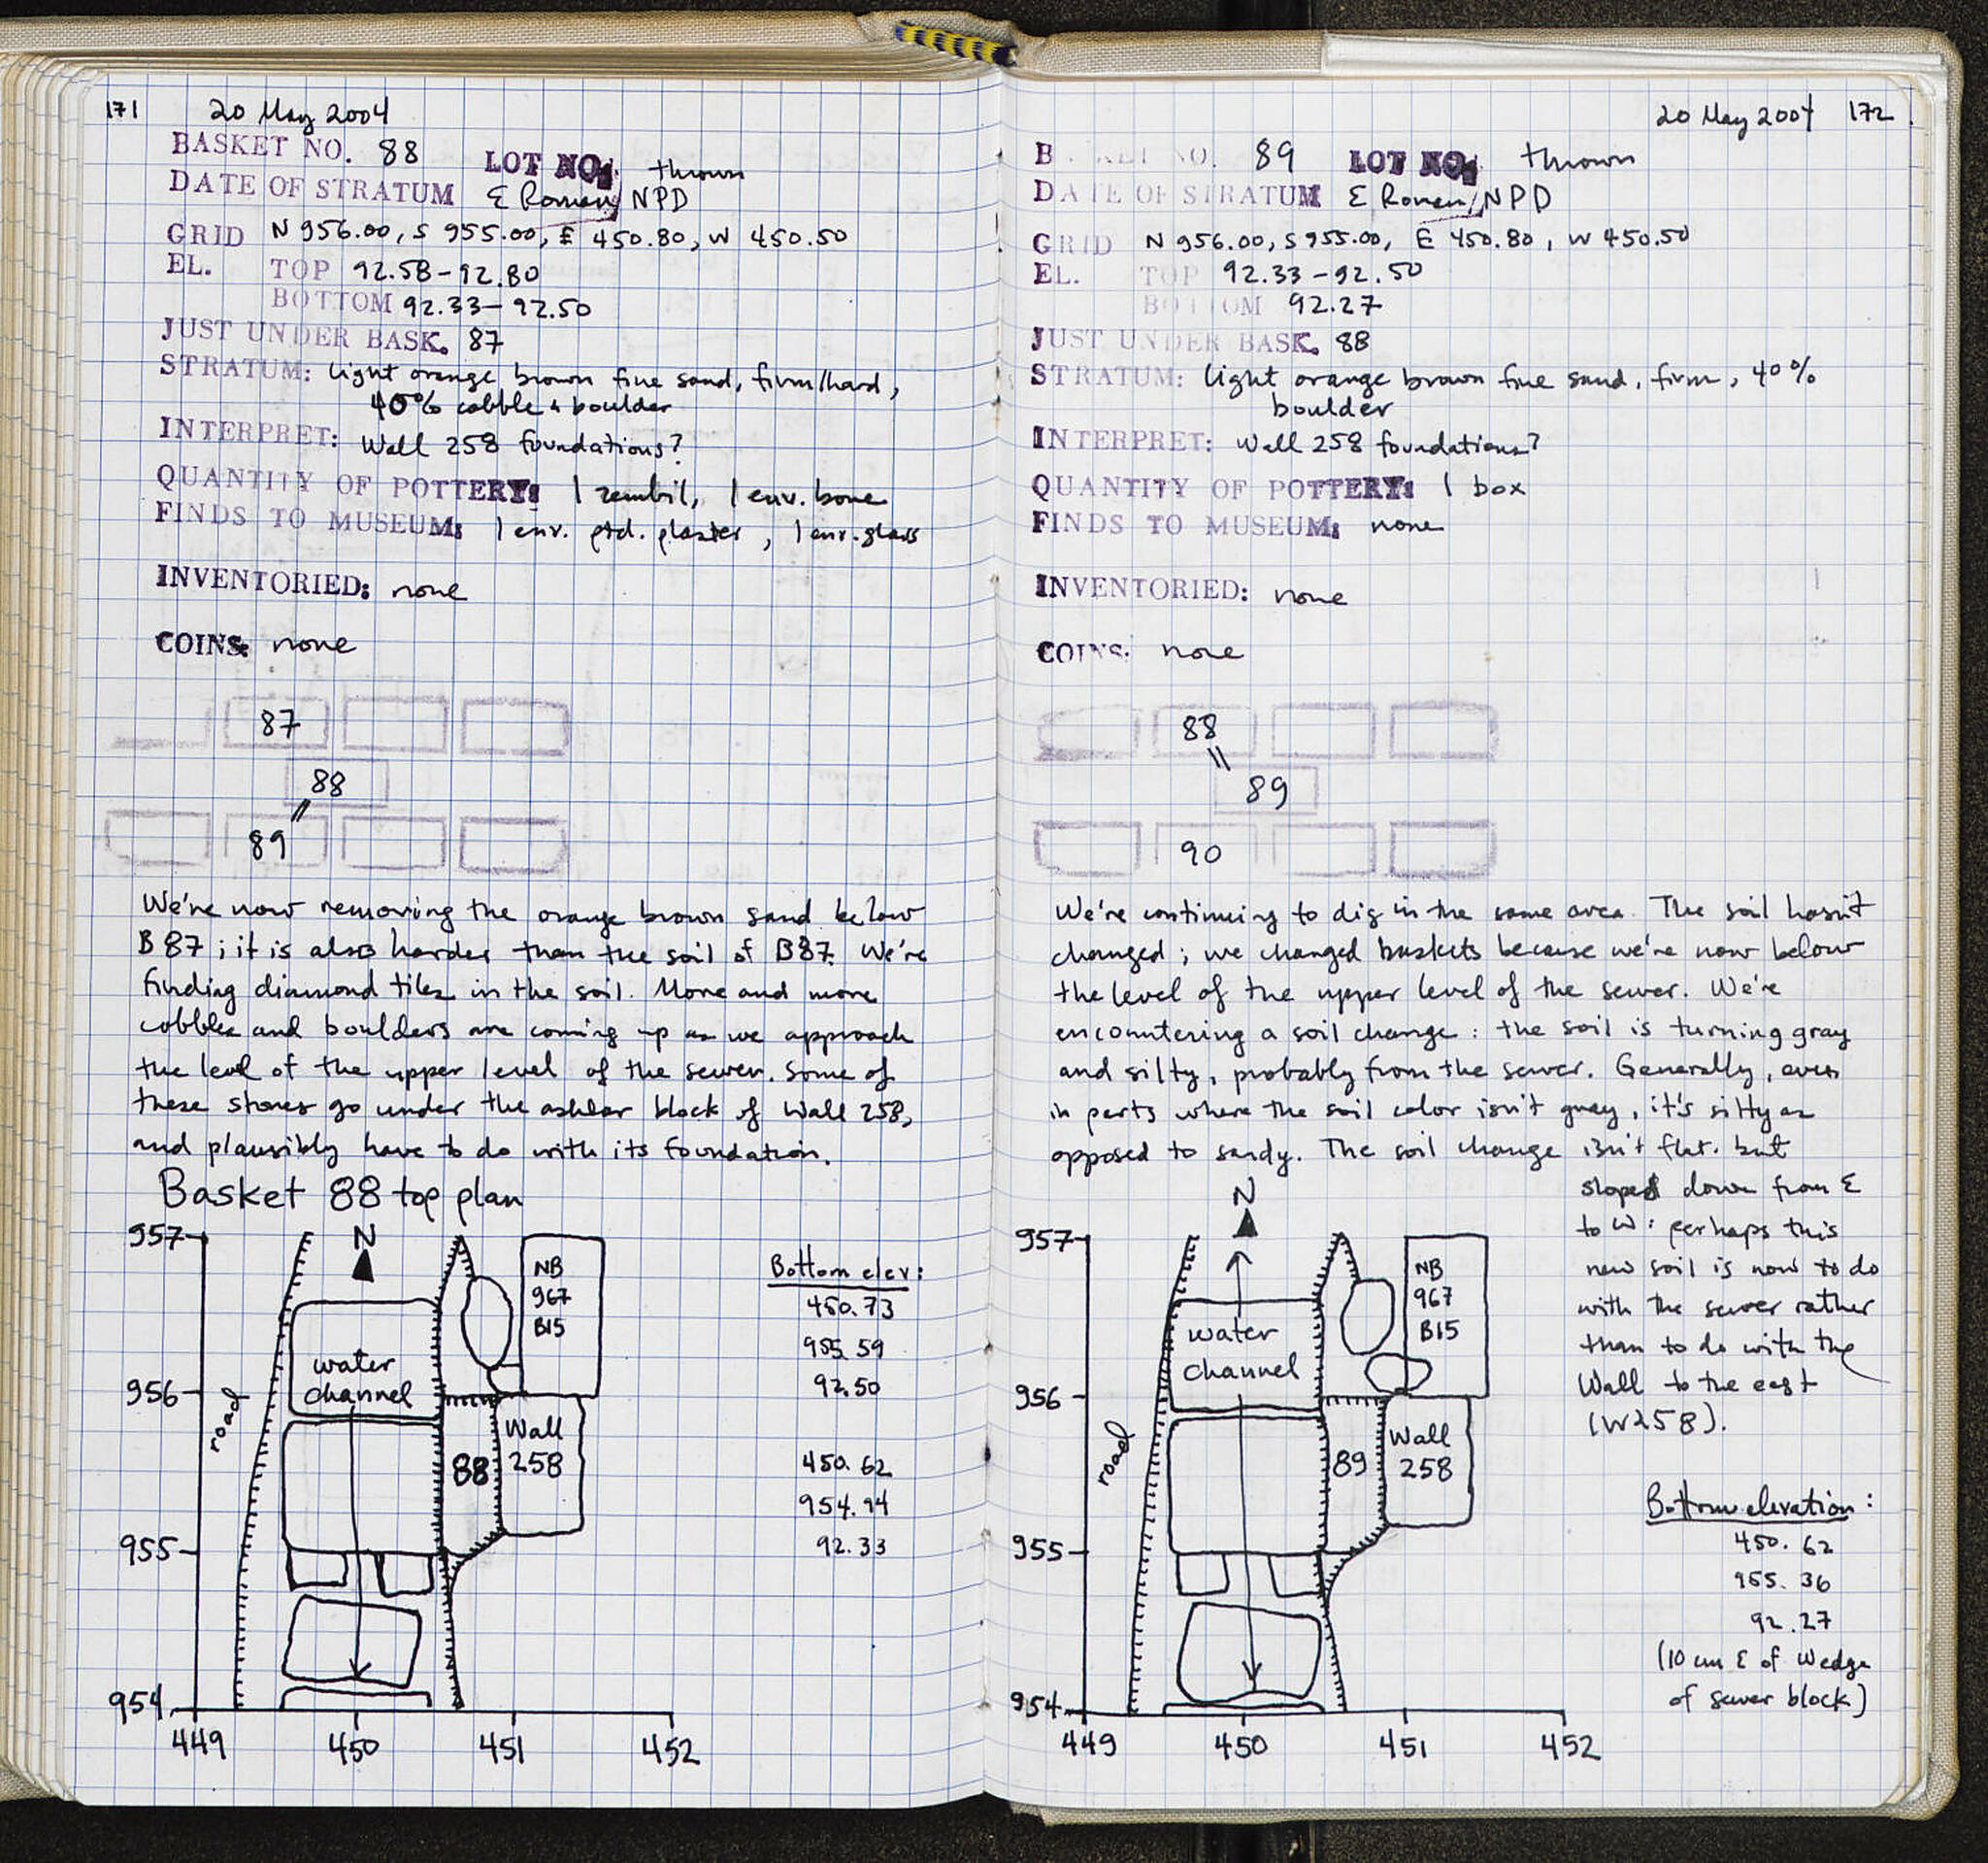 171 20 May 2004
BASKET NO. 88 LOT NO. thrown
DATE OF STRATUM E Roman/NPD
GRID N 956.00, S 955.00, E 450.80, W 450.50
EL. TOP 92.58-92.80
BOTTOM 92.33-92.50
JUST UNDER BASK. 87
STRATUM: light orange brown fine sand, firm/hard,
40% cobble & boulder
INTERPRET: Wall 258 foundations?
QUANTITY OF POTTERY: 1 zembil, 1 env. bone
FINDS TO MUSEUM: 1 env. ptd. plaster, 1 env. glass
INVENTORIED: none
COINS: none
87
88
89
We're now removing the orange brown sand below
B87; it is also harder than the soil of B87. We're
finding diamond tiles in the soil. More and more
cobbles and boulders are coming up as we approach
the level of the upper level of the sewer. Some of
these stones go under the ashlar block of Wall 258,
and plausibly have to do with its foundation.
Basket 88 top plan
957
N
NB
967
B15
water
channel
956
road
Wall
258
88
955
954
449 450 451 452
Bottom elev:
450.73
955.59
92.50
450.62
954.94
92.33
20 May 2004 172
BASKET NO. 89 LOT NO. thrown
DATE OF STRATUM E Roman/NPD
GRID N 956.00, S 955.00, E 450.80, W 450.50
EL. TOP 92.33-92.50
BOTTOM 92.27
JUST UNDER BASK. 88
STRATUM: light orange brown fine sand, firm, 40%
boulder
INTERPRET: Wall 258 foundations?
QUANTITY OF POTTERY: 1 box
FINDS TO MUSEUM: none
INVENTORIED: none
COINS: none
88
89
90
We're continuing to dig in the same area. The soil hasn't
changed; we changed baskets because we're now below
the level of the upper level of the sewer. We're
encountering a soil change: the soil is turning gray
and silty, probably from the sewer. Generally, even
in parts where the soil color isn't gray, it's silty as
opposed to sandy. The soil change isn't flat. but
sloped down from E
to W: perhaps this
new soil is now to do
with the sewer rather
than to do with the
Wall to the east
(W258).
N
957
NB
967
B15
water
channel
956
road
Wall
258
89
955
954
449 450 451 452
Bottom elevation:
450.62
955.36
92.27
(10 cm E of wedge
of sewer block)